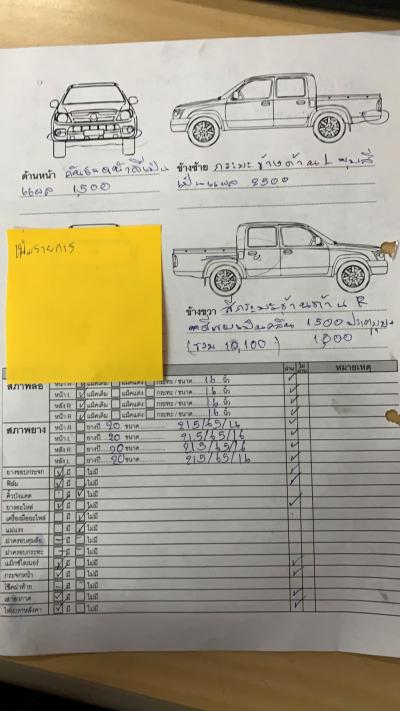 ด้านหน้า กันชนหน้าสีเป็น
แผล 1,500
ข้างซ้าย กระบะข้างด้าน L บุบสี
เป็นแผล 2500
เพิ่มรายการ
ข้างขวา สีกระบะด้าน R
เป็นคลื่น 1500 ประตูบุบ
(รวม 10,100) 1,000
ผ่าน ไม่ผ่าน หมายเหตุ
สภาพล้อ
หน้า R แม็คเดิม แม็คแต่ง กระทะ / ขนาด 16 นิ้ว
หน้า L แม็คเดิม แม็คแต่ง กระทะ / ขนาด 16 นิ้ว
หลัง R แม็คเดิม แม็คแต่ง กระทะ / ขนาด 16 นิ้ว
แม็คเดิม แม็คแต่ง กระทะ / ขนาด 16 นิ้ว
สภาพยาง
หน้า R ยางปี 20 ขนาด 215/65/16
หน้า L ยางปี 20 ขนาด 215/65/16
หลัง R ยางปี 20 ขนาด 215/65/16
หลัง L ยางปี 20 ขนาด 215/65/16
ยางขอบกระจก มี ไม่มี
ฟิล์ม มี ไม่มี
คิ้วบังแดด มี ไม่มี
ยางอะไหล่ มี ไม่มี
เครื่องมืออะไหล่ มี ไม่มี
แม่แรง มี ไม่มี
ฝาครอบดุมล้อ มี ไม่มี
ฝาครอบกระทะ มี ไม่มี
แม็กซ์ไลเนอร์ มี ไม่มี
กระจกหน้า มี ไม่มี
โช๊คฝาท้าย มี ไม่มี
เสาอากาศ มี ไม่มี
ไฟเบรกหลังคา มี ไม่มี